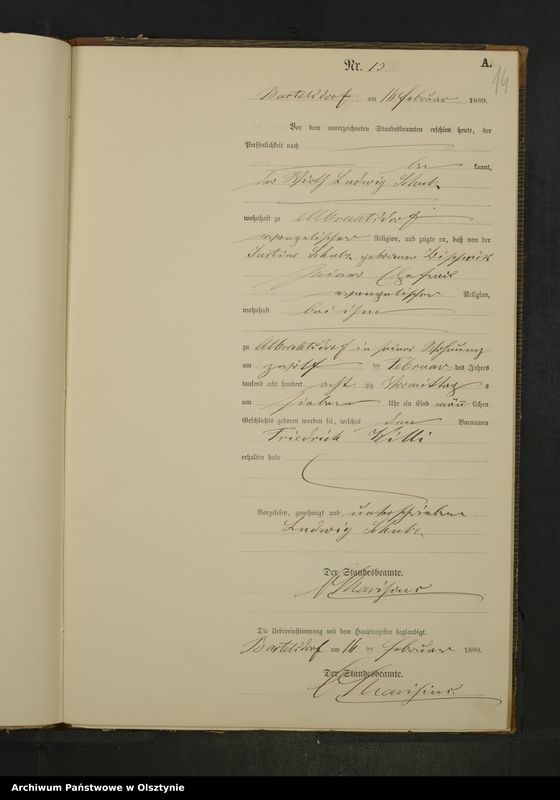 Nr. 13
A.
14
Bartelsdorf am 14 Februar 1880.
Vor dem unterzeichneten Standesbeamten erschien heute, der
Persönlichkeit nach
be kannt,
der Wirth Ludwig Schulz
wohnhaft zu Albrechtsdorf
evangelischer Religion, und zeigte an, daß von der
Justine Schulz geborenen
seiner Ehefrau
evangelischer Religion,
wohnhaft bei ihm
zu Albrechtsdorf in seiner Wohnung
am Februar des Jahres
tausend acht hundert acht zig Vormittag s
um sieben Uhr ein Kind männ lichen
Geschlechts geboren worden sei, welches den Vornamen
Friedrich Willi
erhalten habe
Vorgelesen, genehmigt und unterschrieben
Ludwig Schulz
Der Standesbeamte.
Die Uebereinstimmung mit dem Hauptregister beglaubigt.
Bartelsdorf am 14 ten Februar 1880.
Der Standesbeamte.
Archiwum Państwowe w Olsztynie